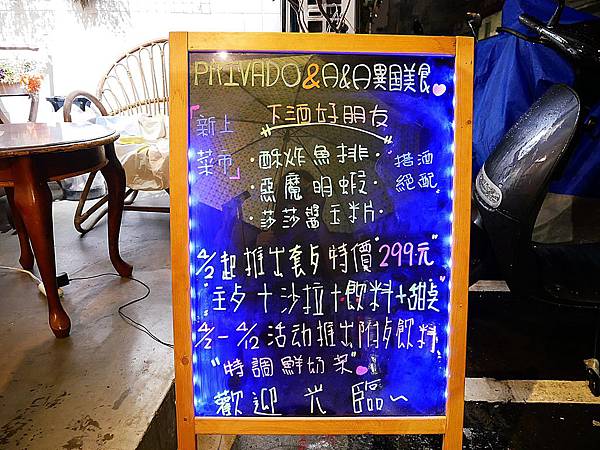 PRIVADO&日&日異国美食
下酒好朋友
「新上
菜市」
·酥炸魚排·
·惡魔明蝦·
·莎莎醬玉米片·
搭酒
絕配
4/2起推出套歺特價"299元"
主歺+沙拉+飲料+甜点
4/2-4/12活动推出附歺飲料
"特調鮮奶茶"
歡迎光臨~